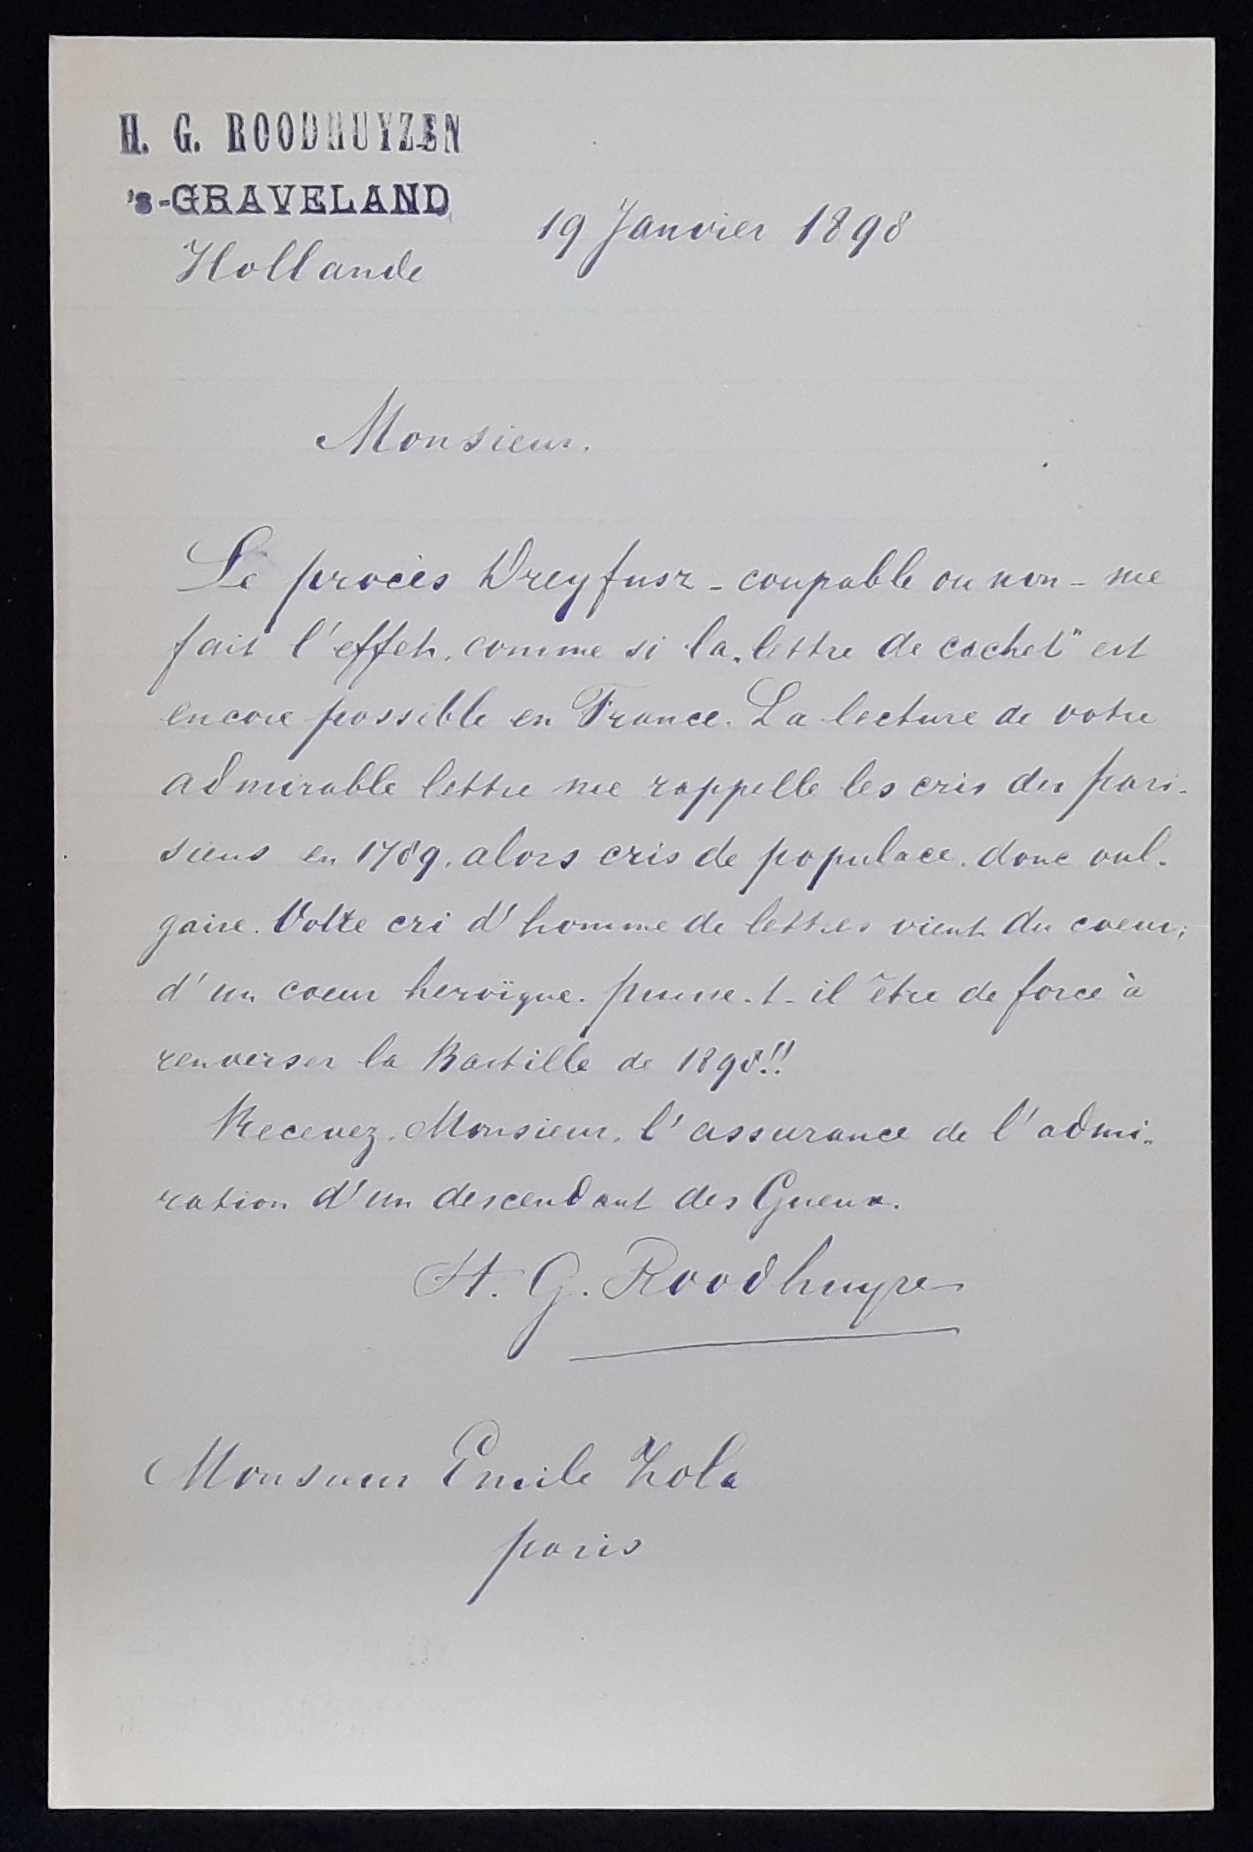 H. G. ROODHUYZEN
's-GRAVELAND
Hollande
19 Janvier 1898
Monsieur.
Le procès Dreyfusz - coupable ou non - me
fait l'effet, comme si la „lettre de cachet" est
encore possible en France. La lecture de votre
admirable lettre me rappelle les cris du pari-
siens en 1789, alors cris de populace, donc vul-
gaire. Votre cri d'homme de lettres vient du coeur;
d'un coeur heroïque. puisse-t-il être de force à
renverser la Bastille de 1898!!
Recevez, Monsieur, l'assurance de l'admi-
ration d'un descendant des Gueux.
H. G. Roodhuyzen
Monsieur Emile Zola
paris